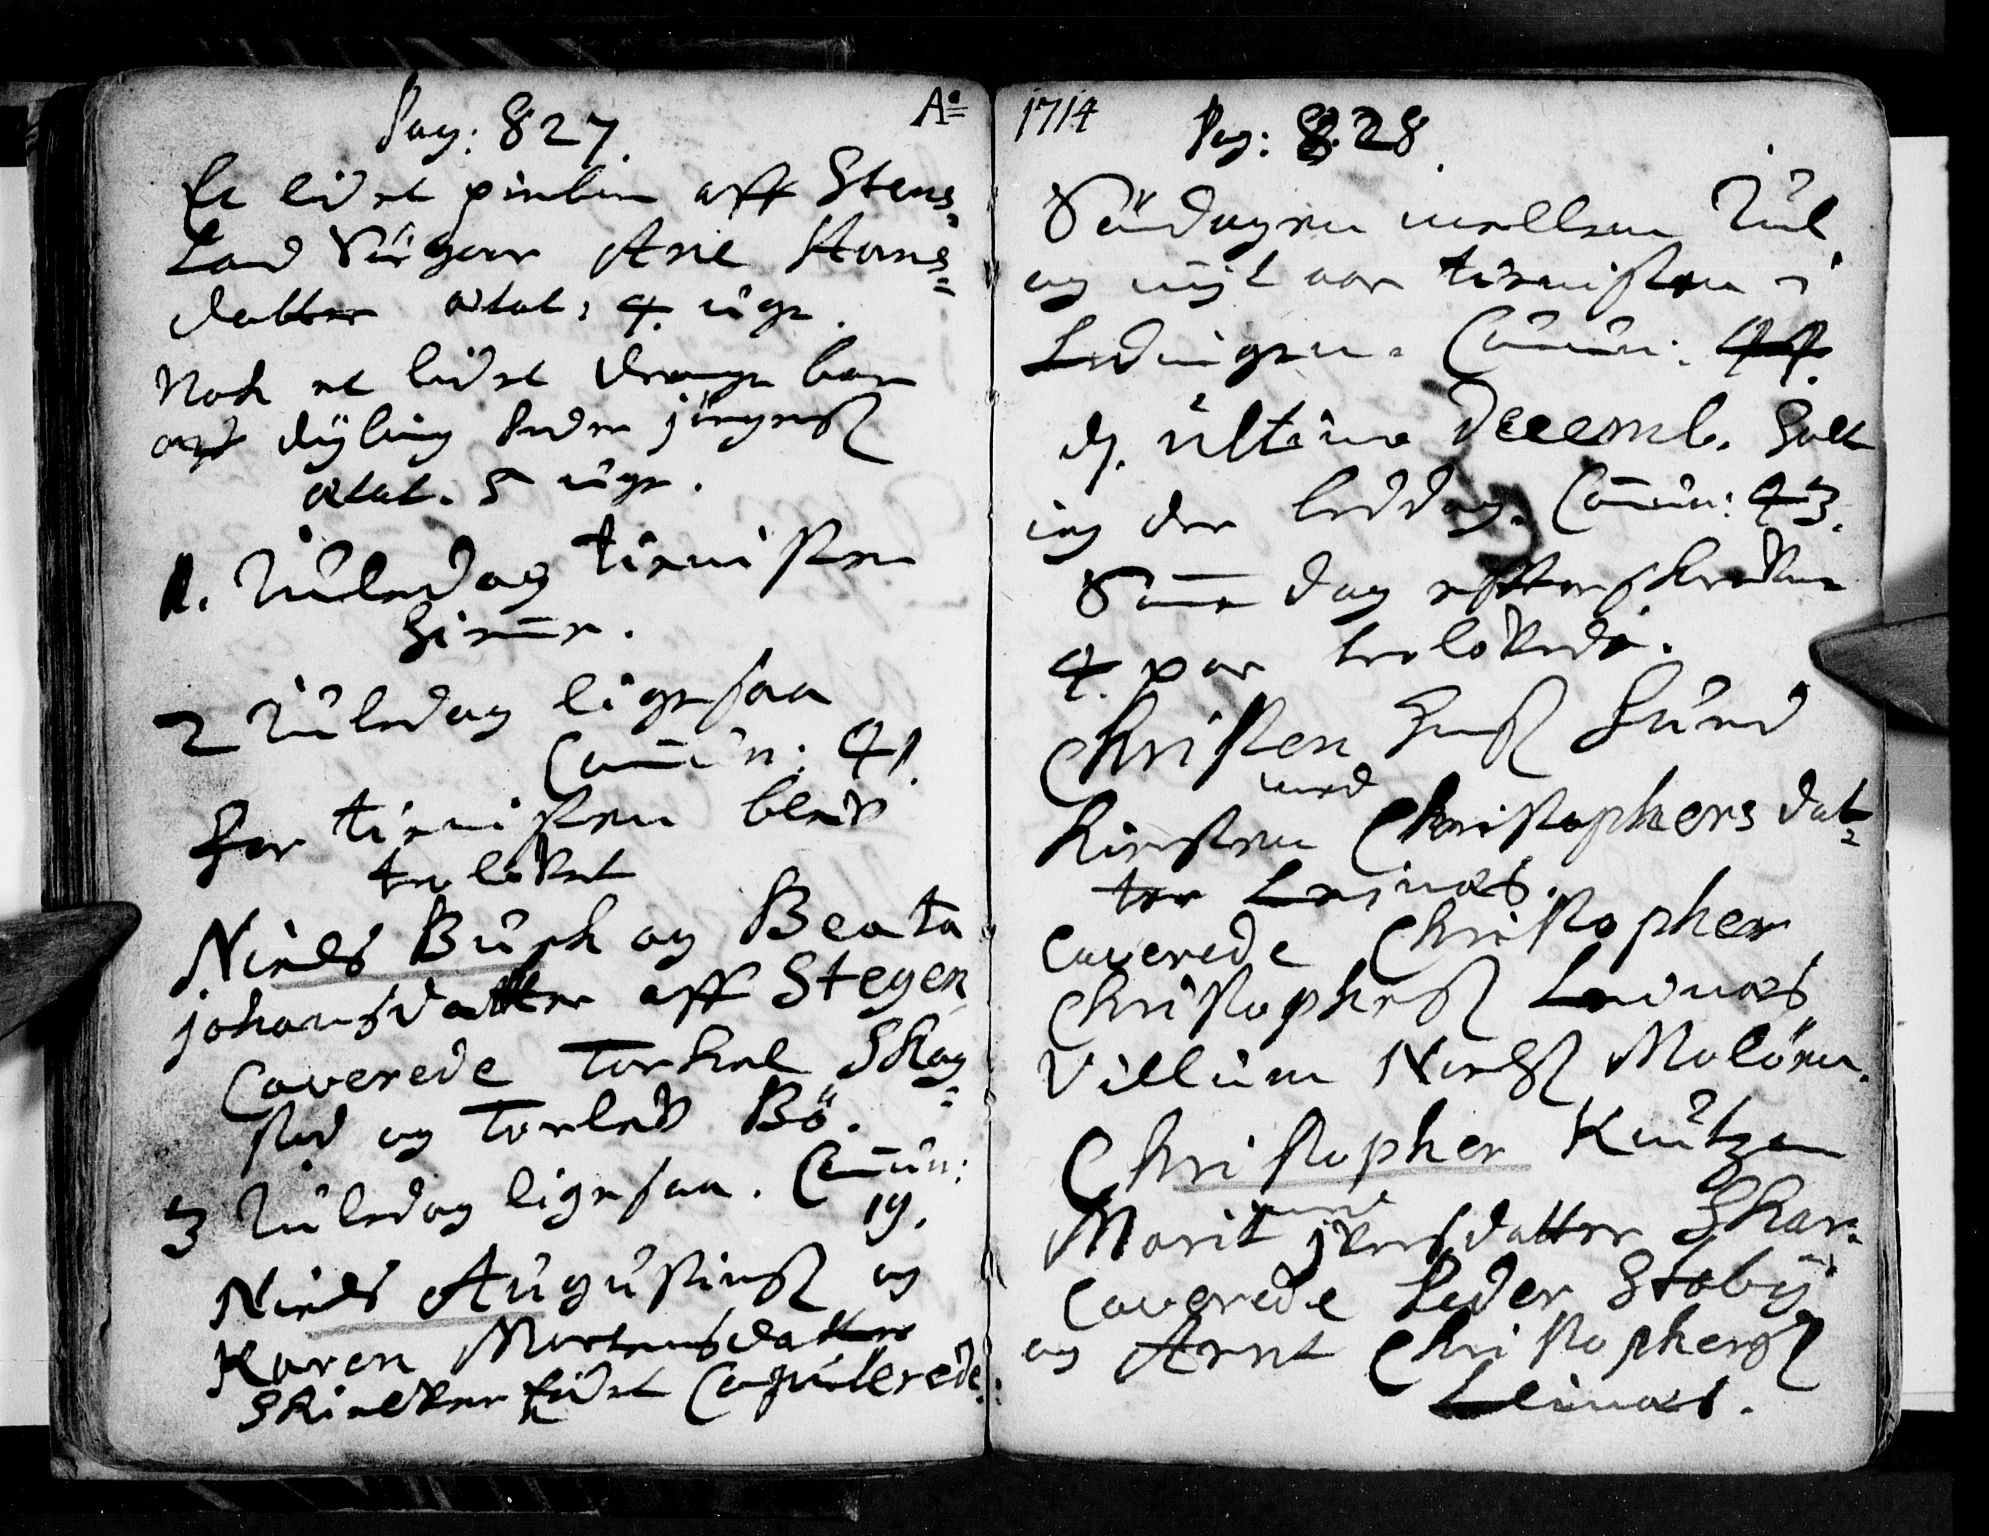 Pag: 827.
Et lidet pigebn aff Stens=
Land Siugour Ane Hans=
datter ætat: 4. uger.
Noch et lidet drenge barn
Dyling Peder jörgenß
ætat. 5 uger.
1. Juledag tienisten
Hiemme.
2 Juledag ligesaa
Com̅un: 41.
Før tienisten blev
trolovet
Niels Buch og Beata
johansdatter aff Stegen
Caverede Torkel Skag=
stad og Torlev Bö.
3 Juledag ligesaa. Com̅un:
19.
Niels Augustinß og
Karen Mortensdatter
Skielver Eidet Copulerede.
Ao= 1714
Pag: 828.
Söndagen mellem Jul
og nyt aar tienisten i
Lödingen. Com̅un: 44.
d. ultima Decemb. Holt
ieg der beddag. Com̅un: 43.
Sam̅e dag effterskrevne
4. par trolovede.
Christen Hanß Hund
med
Kiersten Christophers dat=
ter Leinæs.
Caverede Christopher
Christopherß Leinæs
Villum Nielß Molöen.
Christopher Knutzen
med
Marit jversdatter Skar=
Caverede Peder Stoby
og Arnt Christopherß
Leinæs.